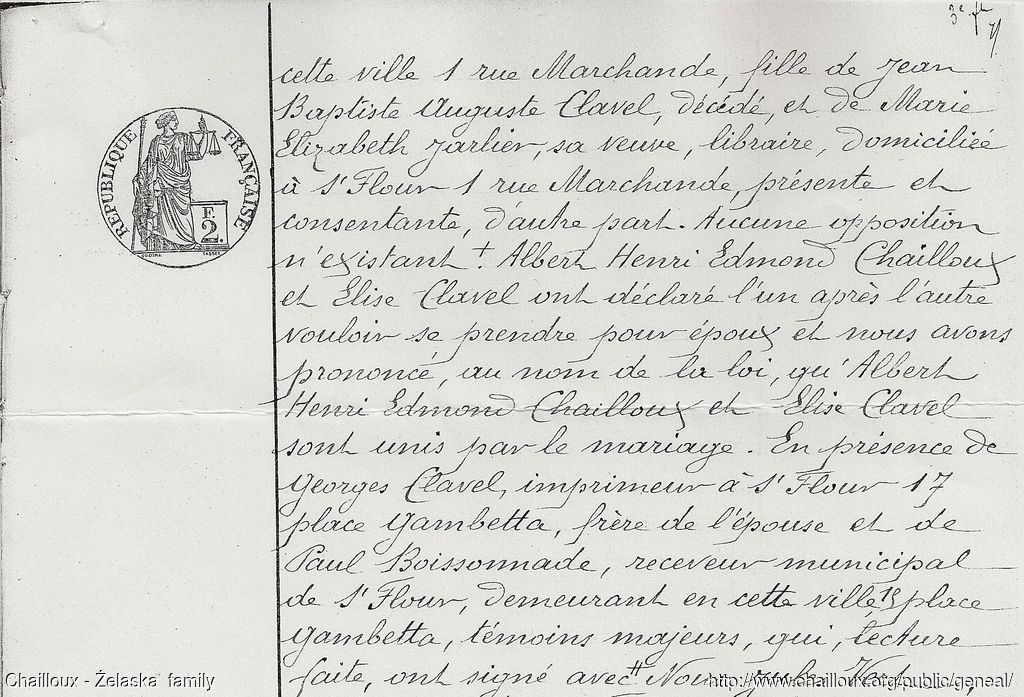 3e flle
cette ville 1 rue Marchande, fille de Jean
Baptiste Auguste Clavel, décédé, et de Marie
Elizabeth Jarlier, sa veuve, libraire, domiciliée
à St Flour 1 rue Marchande, présente et
consentante, d'autre part. Aucune opposition
n'existant +. Albert Henri Edmond Chailloux
et Elise Clavel ont déclaré l'un après l'autre
vouloir se prendre pour époux et nous avons
prononcé, au nom de la loi, qu'Albert
Henri Edmond Chailloux et Elise Clavel
sont unis par le mariage. En présence de
Georges Clavel, imprimeur à St Flour 17
place Gambetta, frère de l'épouse et de
Paul Boissonnade, receveur municipal
de St Flour, demeurant en cette ville, place
Gambetta, témoins majeurs, qui, lecture
faite, ont signé avec Nous
RÉPUBLIQUE FRANÇAISE
F.
2.
TASSET
Chailloux - Żelaska family
http://www.chailloux.org/public/geneal/